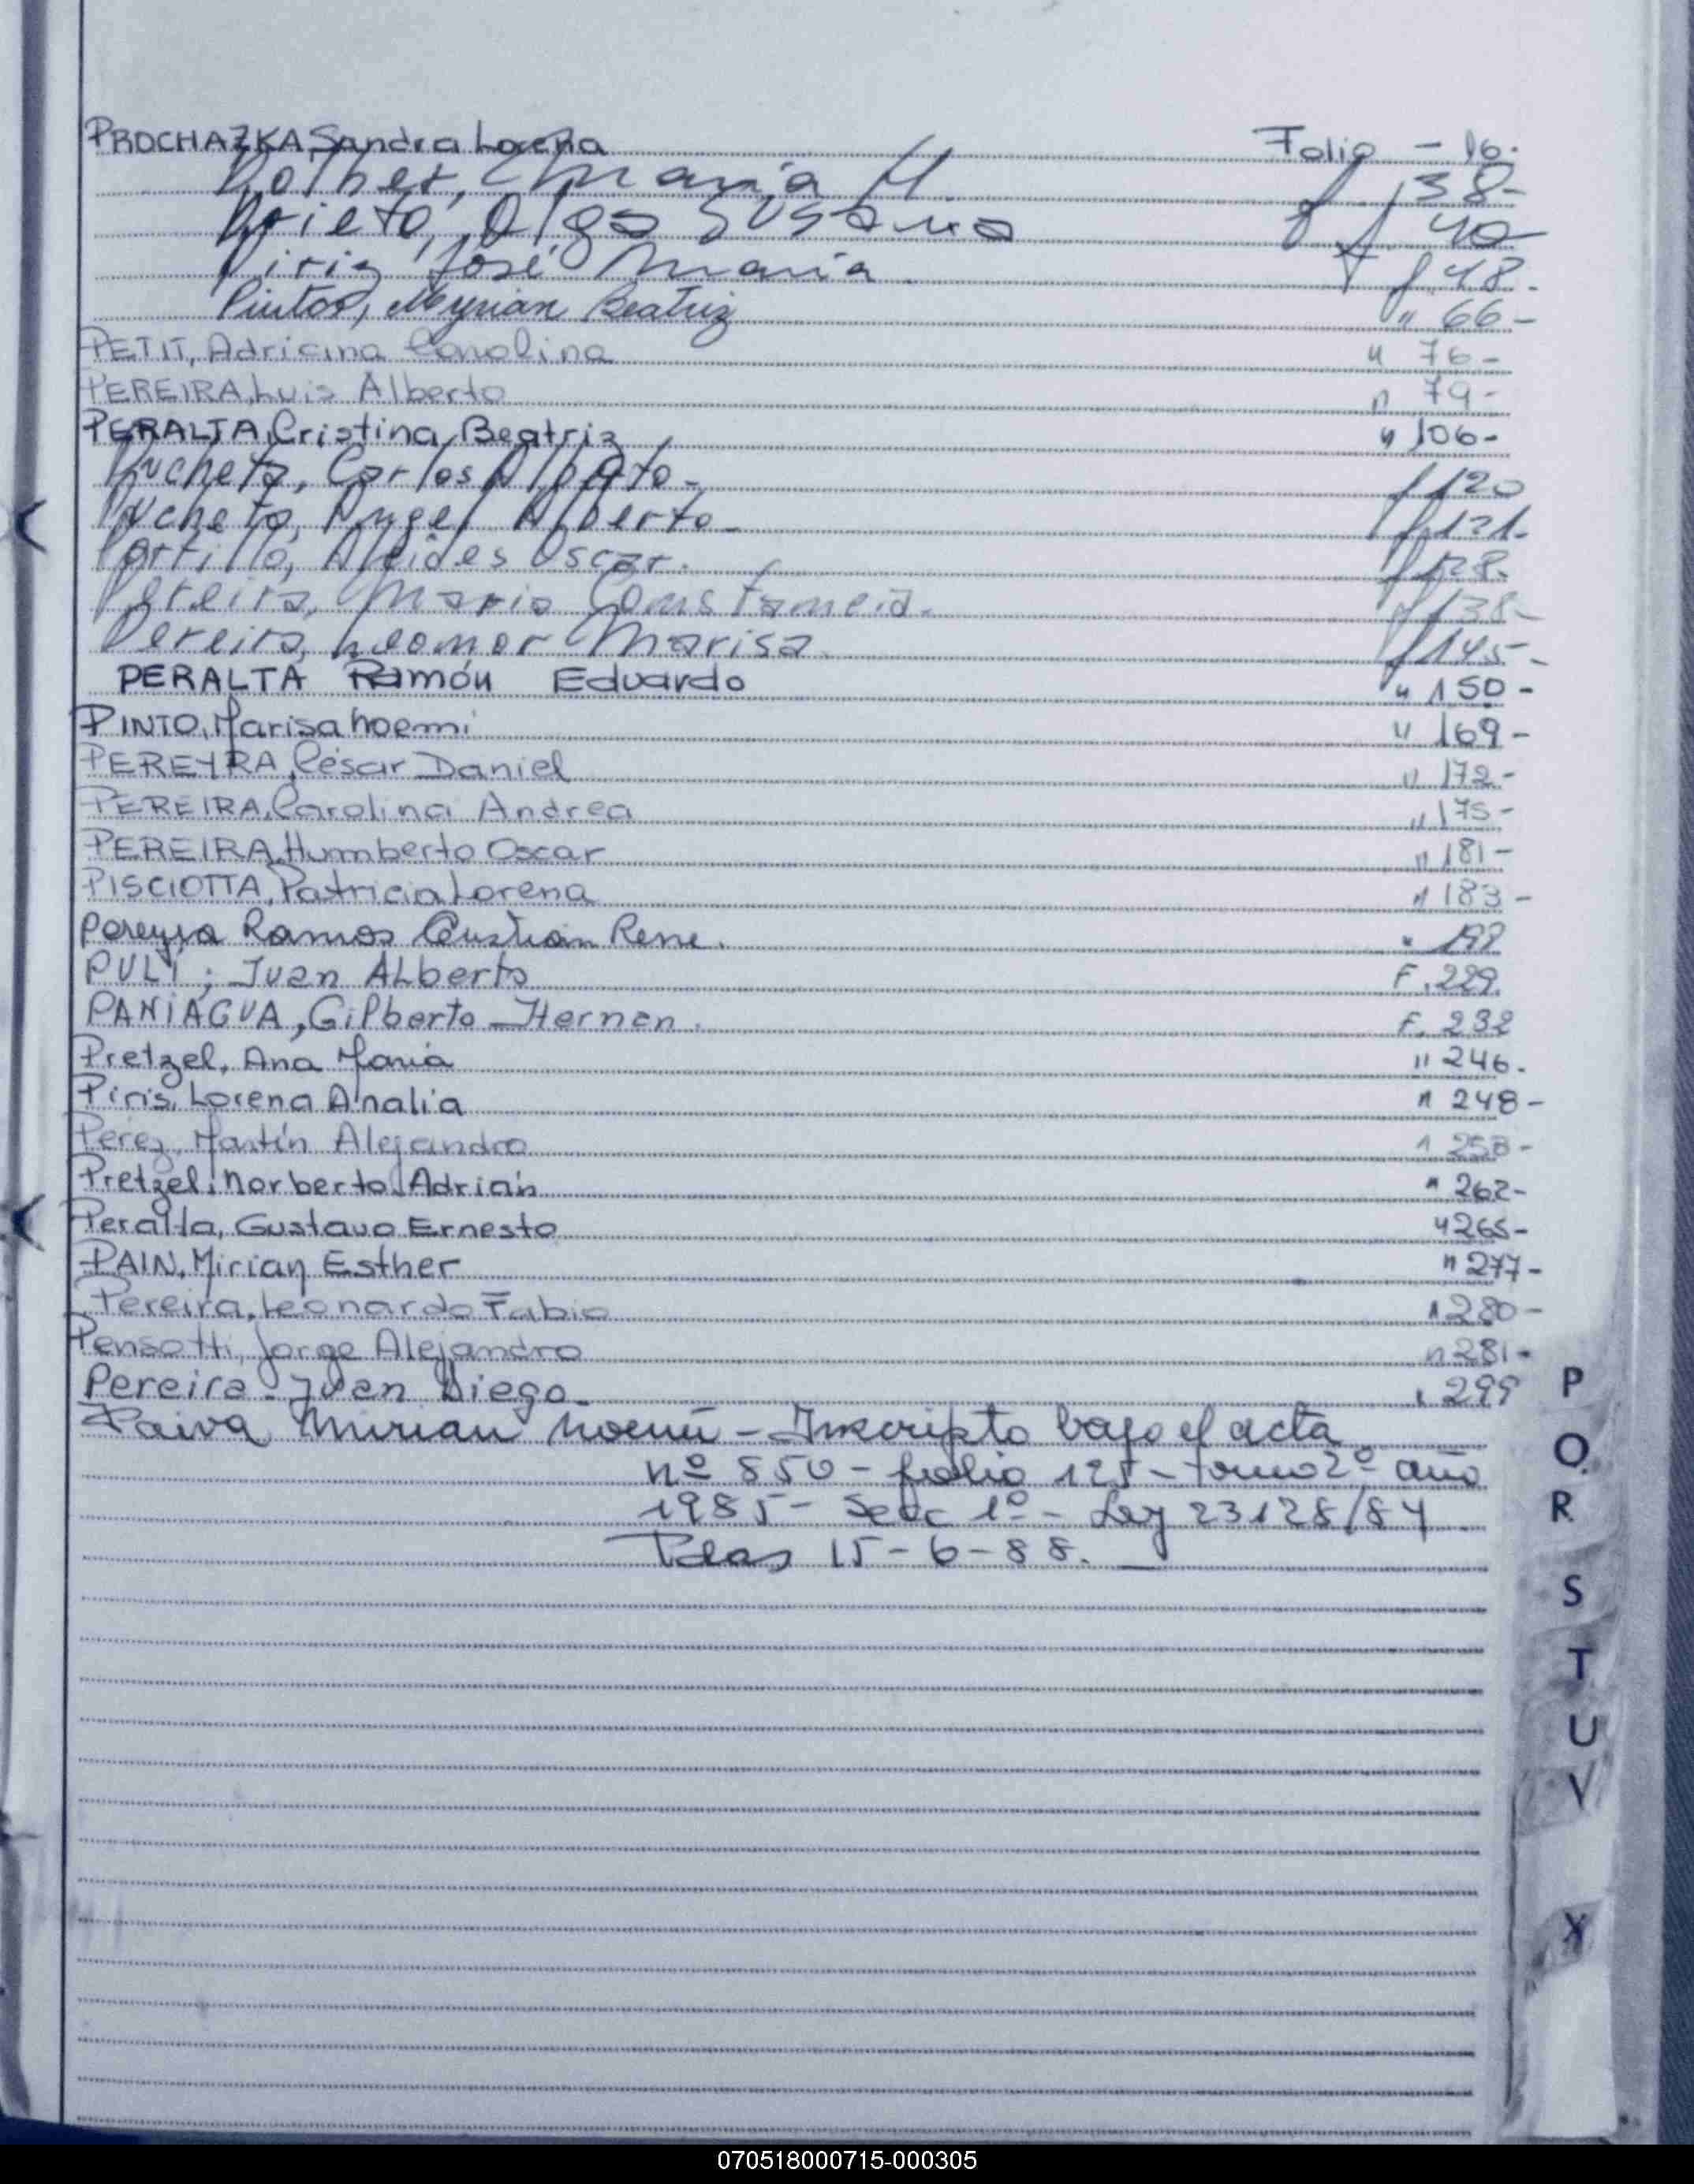 PROCHAZKA, Sandra Lorena Folio - 16.
Polher, María M f 38-
Prieto, Olga Susana f 40
Piriz José María f 48-
Pintos, Myrian Beatriz " 66-
PETIT, Adriana Carolina " 76-
PEREIRA, Luis Alberto " 79-
PERALTA, Cristina Beatriz " 106-
Pucheta, Carlos Alberto- f 120
Pucheta, Angel Alberto- f 121-
Portillo, Alcides Oscar. f 128.
Pereira, Mario f 138-
Pereira, Leonor Marisa. f 145-
PERALTA Ramón Eduardo " 150-
PINTO, Marisa Noemi " 169-
PEREYRA, César Daniel " 172-
PEREIRA, Carolina Andrea " 175-
PEREIRA, Humberto Oscar " 181-
PISCIOTTA, Patricia Lorena " 183-
Pereyra Ramos Cristian Rene.
PULI; Juan ALberto F. 229.
PANIAGUA, Gilberto Hernan. F. 232
Pretzel, Ana María " 246.
Piris, Lorena Analía " 248-
Perez, Martín Alejandro " 258-
Pretzel, Norberto Adrián " 262-
Peralta, Gustavo Ernesto " 265-
PAIN, Mirian Esther " 277-
Pereira, Leonardo Fabio " 280-
Pensotti, Jorge Alejandro " 281-
Pereira - Juan Diego- " 299
Paiva Mirian Noemí - Inscripto bajo el acta
nº 850 - folio 125 - tomo 2º año
1985 - Secc 1º - Ley 23128/84
Pdas 15-6-88.
P
Q
R
S
T
U
V
X
070518000715-000305